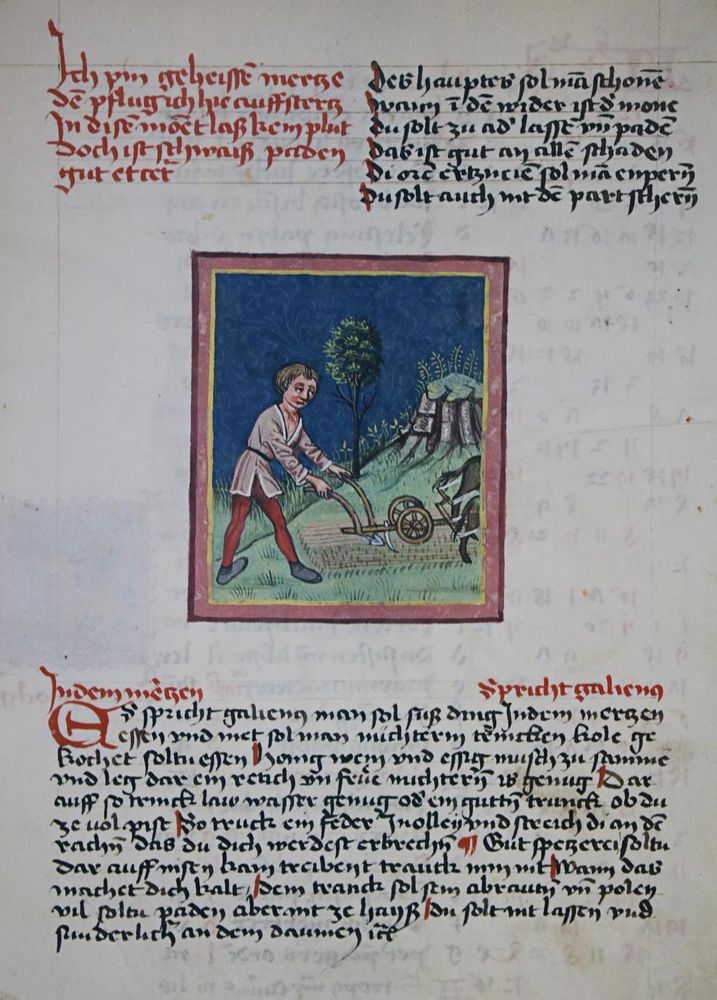 Ich pin geheissē mertze
dē pflug ich hie auff stertz
In disē monet laß kein plut
Doch ist schwaiß paden
gut etcet̄
Des hauptes sol mā schonē
wann ī dē wider ist d̓ mone
Du solt zu ad̓ lassē vn̄ padē
Das ist gut an allē schaden
Di orē ertzneiē sol mā enpern̄
Du solt auch nit dē part schern̄
In dem mertzen
Spricht galienus
ES spricht galienus man sol süß ding In dem mertzen
essen vnd met sol man nüchtern trincken kole ge
kochet soltu essen Honig wein vnd essig musch zu samme
vnd leg dar ein retich vn̄ nüchtern̄ is genug Dar
auff so trinck law wasser genug od̓ ein gutten̄ trunck ob du
ze vol pist So truck ein feder In olley vnd streich di an dē
rachn̄ das du dich werdest erbrechn̄ ¶ Gut spetzerei soltu
dar auff nisen kain treibent tranck nim nit Wann das
machet dich kalt / dein tranck sol sein abrautn̄ vn̄ polen
vil soltu paden aber nit ze haiß Du solt nit lassen̄ vnd
sunderlich̄ an dem daumen